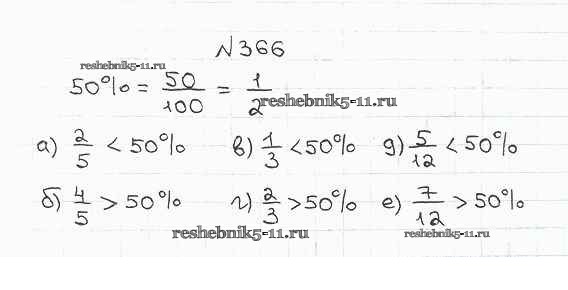 №366
reshebnik5-11.ru
50% = 50/100 = 1/2
reshebnik5-11.ru
а) 2/5 < 50% в) 1/3 < 50% д) 5/12 < 50%
б) 4/5 > 50% г) 2/3 > 50% е) 7/12 > 50%
reshebnik5-11.ru reshebnik5-11.ru